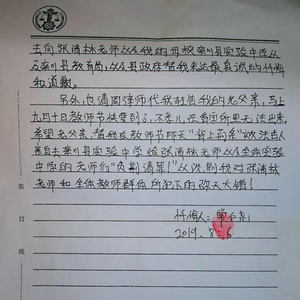 去向张清林老师以及我的母校栾川县实验中学以
及栾川县教育局，以及县政府替我表达最真诚的忏悔
和道歉。
另外，也请周律师代我转告我的老父亲，马上
九月十日教师节就要到了，不孝儿，在看守所里无法出来，
希望老父亲，替我在教师节那天"背上荆条"效法古人
亲自去栾川县实验中学给张清林老师以及全体实验
中学的老师们"负荆请罪！"以洗刷我对张清林
老师和全体教师群体所犯下的弥天大错！
忏悔人：常仁尧
2019.8.6
装
订
线